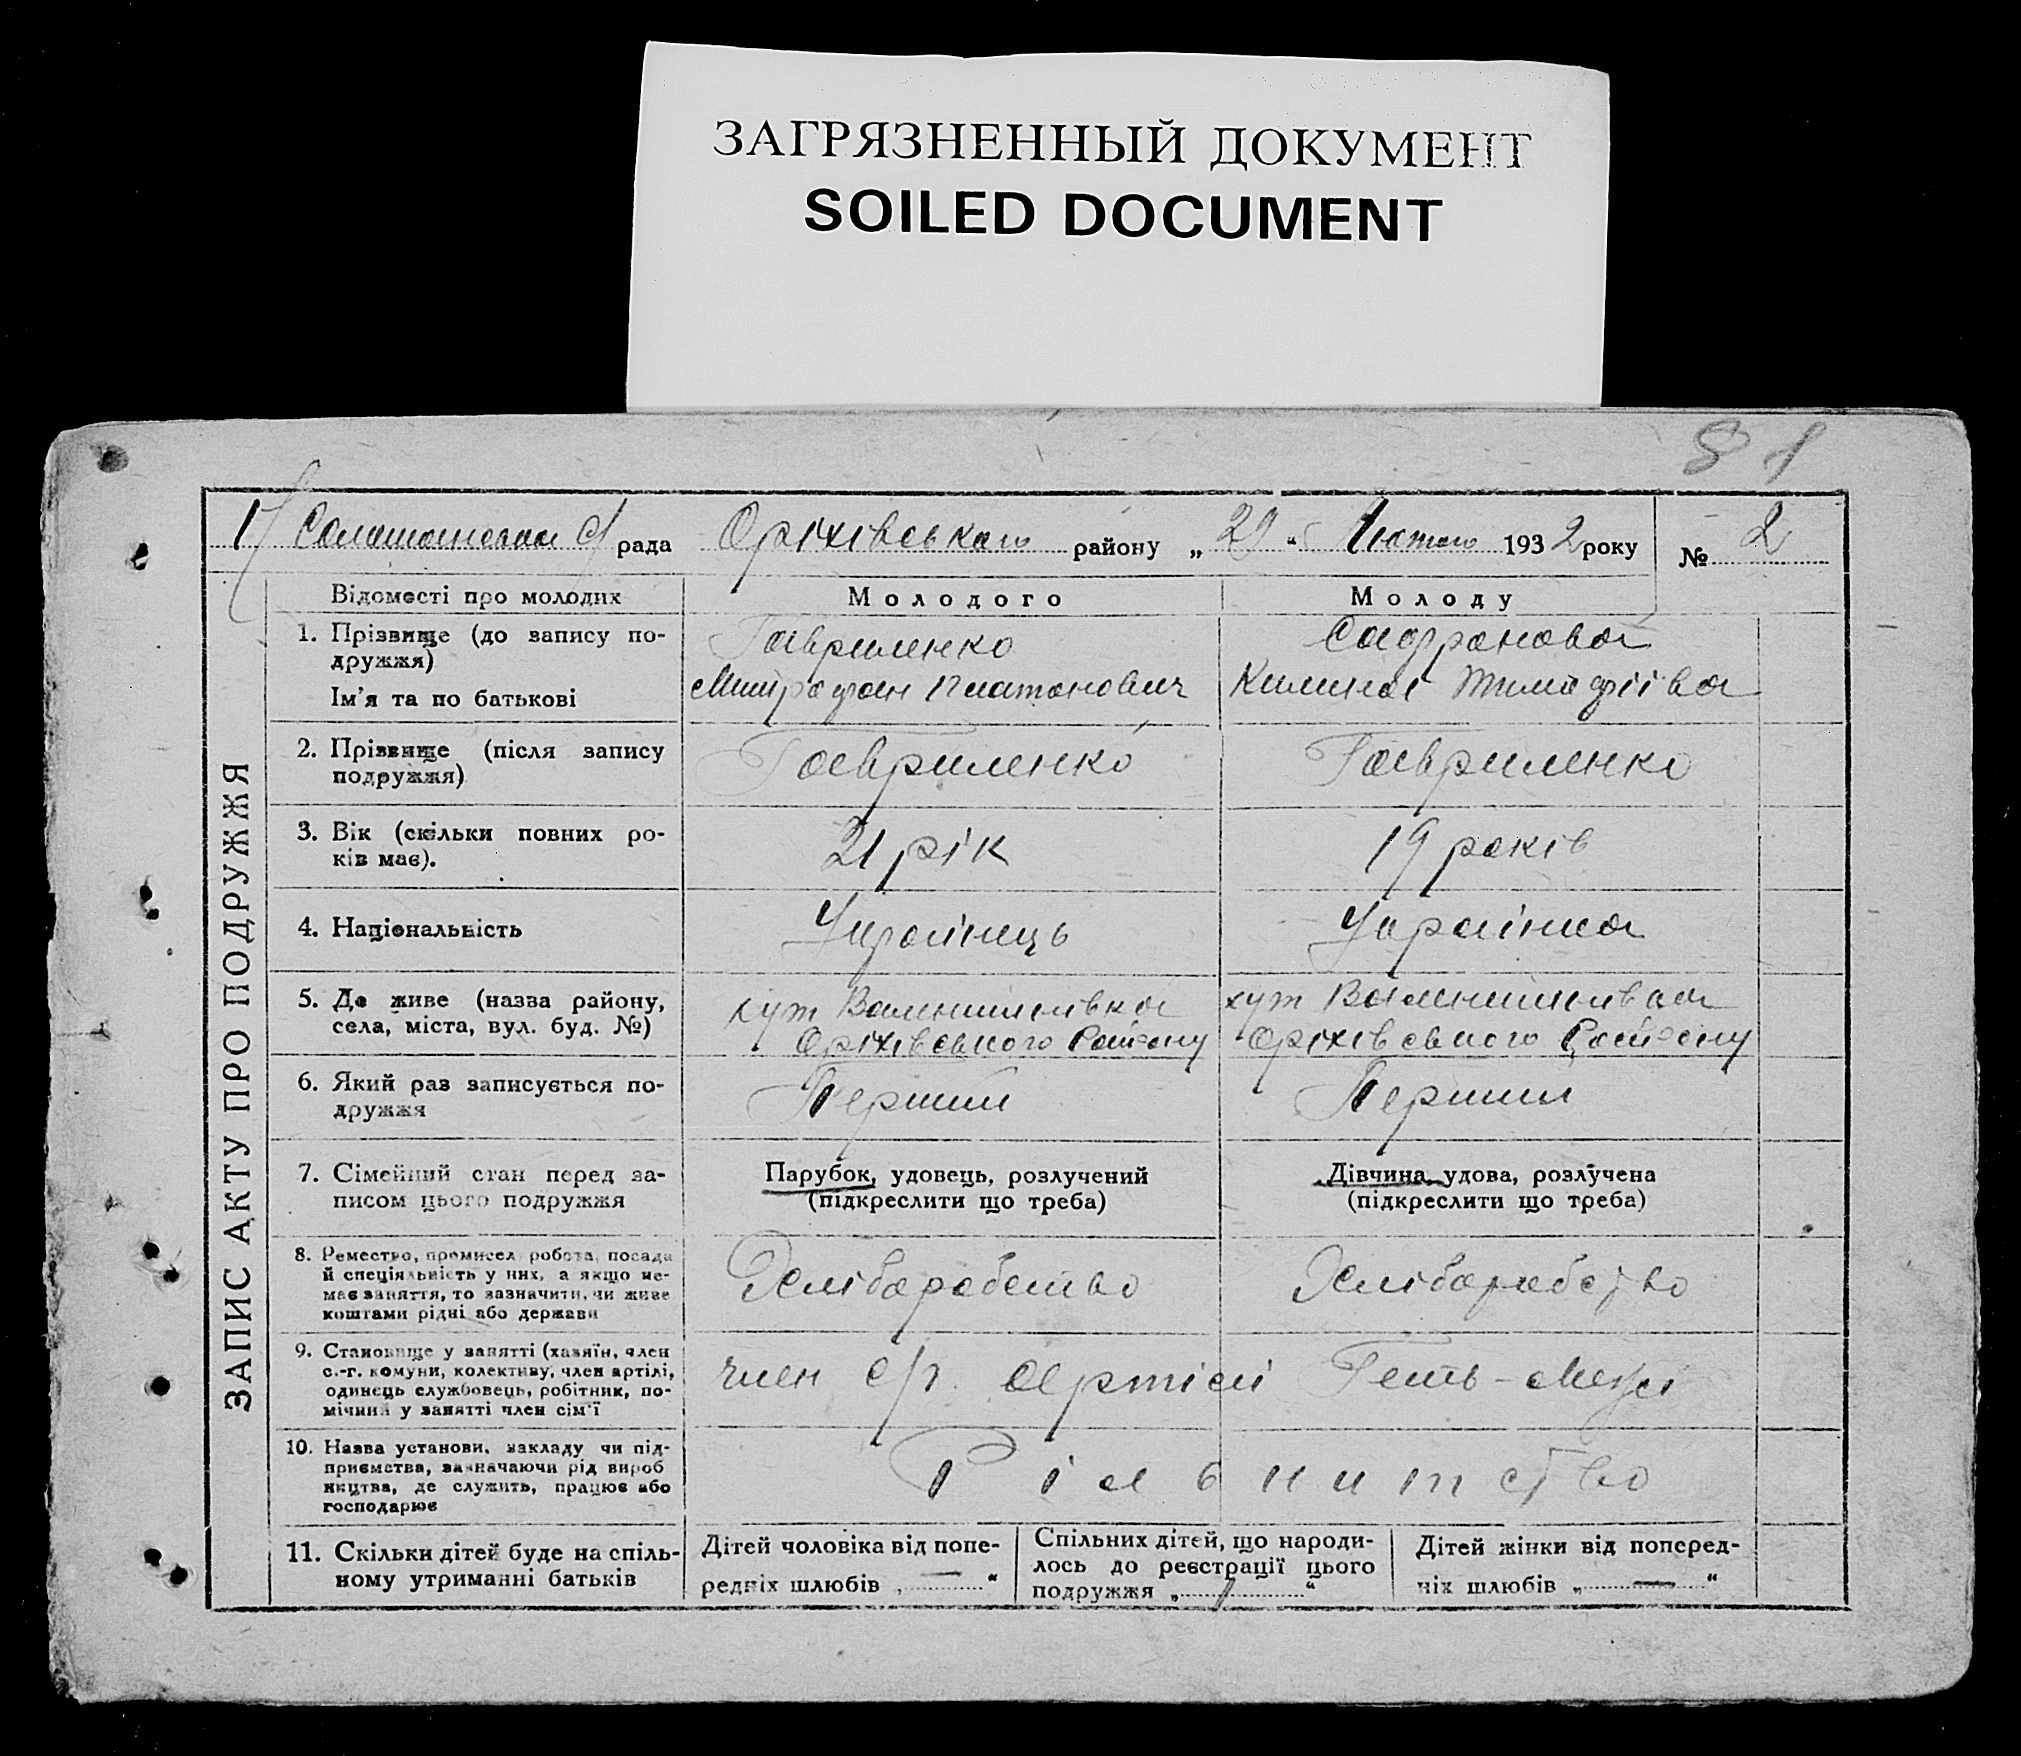 ЗАГРЯЗНЕННЫЙ ДОКУМЕНТ
SOILED DOCUMENT
81
рада Оріхівського району „29“ Лютого 1932 року № 2
ЗАПИС АКТУ ПРО ПОДРУЖЖЯ
Відомості про молодих Молодого Молоду
1. Прізвище (до запису по-
дружжя)
Гавриленко Сафронова
Ім'я та по батькові Митрофан Платонович Килина Тимофіївна
2. Прізвище (після запису
подружжя)
Гавриленко Гавриленко
3. Вік (скільки повних ро-
ків має).
21 рік 19 років
4. Національність Українець Українка
5. Де живе (назва району,
села, міста, вул. буд. №)
хут хут
Оріхівського Району Оріхівського Району
6. Який раз записується по-
дружжя
Перший Перший
7. Сімейний стан перед за-
писом цього подружжя
Парубок, удовець, розлучений
(підкреслити що треба)
Дівчина, удова, розлучена
(підкреслити що треба)
8. Ремество, промисел робота, посада
й спеціяльність у них, а якщо не-
має заняття, то зазначити, чи живе
коштами рідні або держави
9. Становище у занятті (хазяїн, член
с.-г. комуни, колективу, член артілі,
одинець службовець, робітник, по-
мічний у занятті член сім'ї
член с/г. артілі Геть-межі
10. Назва установи, закладу чи під-
приємства, зазначаючи рід вироб
ництва, де служить, працює або
господарює
Рільництво
11. Скільки дітей буде на спіль-
ному утриманні батьків
Дітей чоловіка від попе-
редніх шлюбів „—“
Спільних дітей, що народи-
лось до реєстрації цього
подружжя „1“
Дітей жінки від поперед-
ніх шлюбів „—“